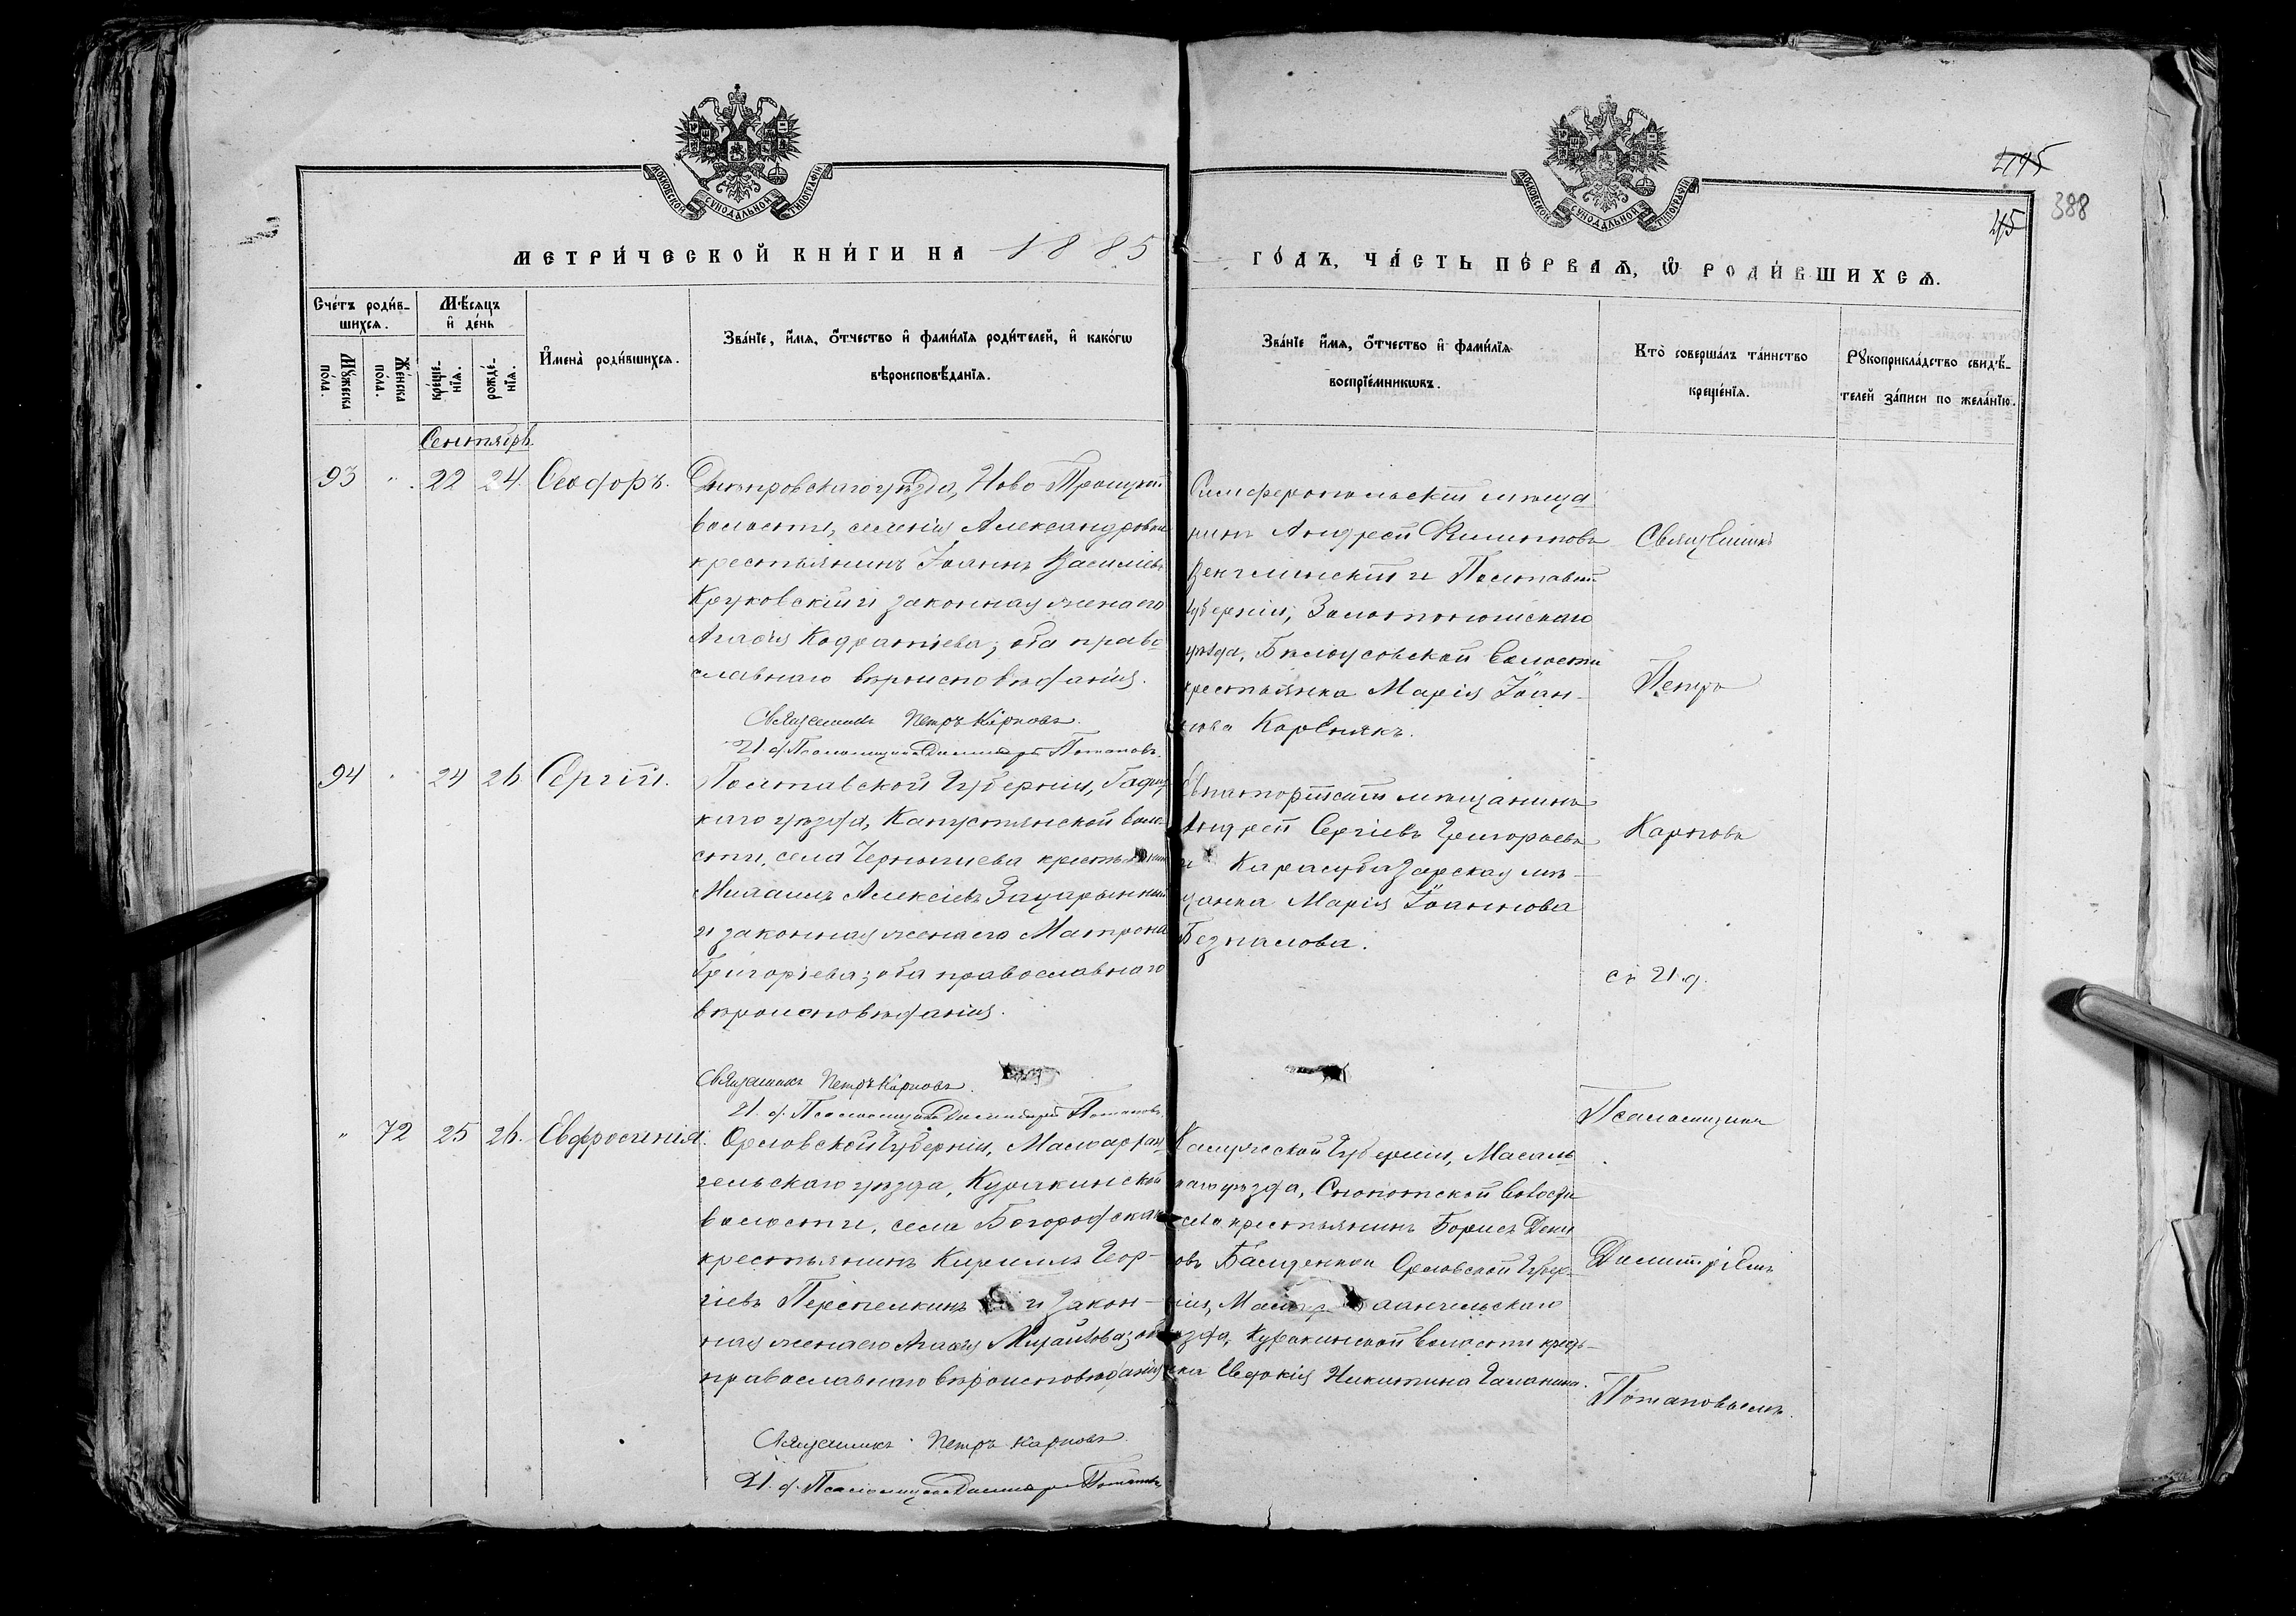 2795
388
45
МОСКОВСКОЙ СѴНОДАЛЬНОЙ ТИПОГРАФІИ
МОСКОВСКОЙ СѴНОДАЛЬНОЙ ТИПОГРАФІИ
МЕТРИ́ЧЕСКОЙ КНИ́ГИ НА 1885
ГО́ДЪ, ЧА́СТЬ ПЕ́РВАѦ, Ѡ РОДИ́ВШИХСѦ.
Сче́тъ роди́в-
шихсѧ.
Мѣ́сѧцъ
и де́нь
Мꙋ́жеска
по́ла.
Же́нска
по́ла.
креще-
нїѧ.
рожде́-
нїѧ.
Имена̀ роди́вшихсѧ.
Зва́нїе, и́мѧ, о́тчество и фами́лїѧ роди́телей, и како́гѡ
вѣроисповѣ́данїѧ.
Зва́нїе и́мѧ, о́тчество и фами́лїѧ
воспрїе́мникѡвъ.
Кто̀ соверша́лъ та́инство
креще́нїѧ.
Рꙋкоприкла́дство свидѣ́-
телей за́писи по жела́нїю.
Сентябрь
93 " 22 24. Ѳеодоръ.
Днѣпровскаго уѣзда, Ново Троицкой
волости, селенія Александровки
крестьянинъ Іоаннъ Василіевъ
Круковскій и законная жена его
Агаѳія Кодратіева; оба право-
славнаго вѣроисповѣданія.
Священникъ Петръ Карповъ.
И. д. Псаломщика Димитрій Потаповъ.
Симферопольскій мѣща-
нинъ Андрей Филиповъ
и Полтавской
губерніи, Золотоношскаго
уѣзда, Бѣлоусовской волости
крестьянка Марія Іоан-
нова
94 " 24 26 Сергій.
Полтавской губерніи, Гадяц-
каго уѣзда, Капустянской воло-
сти, села крестьянинъ
Михаилъ Алексіевъ
и законная жена его Матрона
Григоріева; оба православнаго
вѣроисповѣданія.
Священникъ Петръ Карповъ.
И. д. Псаломщика Димитрій Потаповъ.
Евпаторійскій мѣщанинъ
Андрей Сергіевъ Григорьевъ
и Карасубазарская мѣ-
щанка Марія Іоаннова
Безпалова.
" 72 25 26. Евфросинія.
Орловской губерніи, Малоархан-
гельскаго уѣзда, Куракинской
волости, села Богородскаго
крестьянинъ Кириллъ Геор-
гіевъ Перепелкинъ и закон-
ная жена его Агаѳія Михайлова; оба
православнаго вѣроисповѣданія
Священникъ Петръ Карповъ.
И. д. Псаломщика Димитрій Потаповъ
Калужской губерніи, Масаль-
скаго уѣзда, волости
крестьянинъ Борисъ
Орловской губер-
ніи, Малоархангельскаго
уѣзда, Куракинской волости кресть-
янка Евдокія Никитина
Священникъ
Петръ
Карповъ
съ И. д.
Псаломщика
Димитріемъ
Потаповымъ.